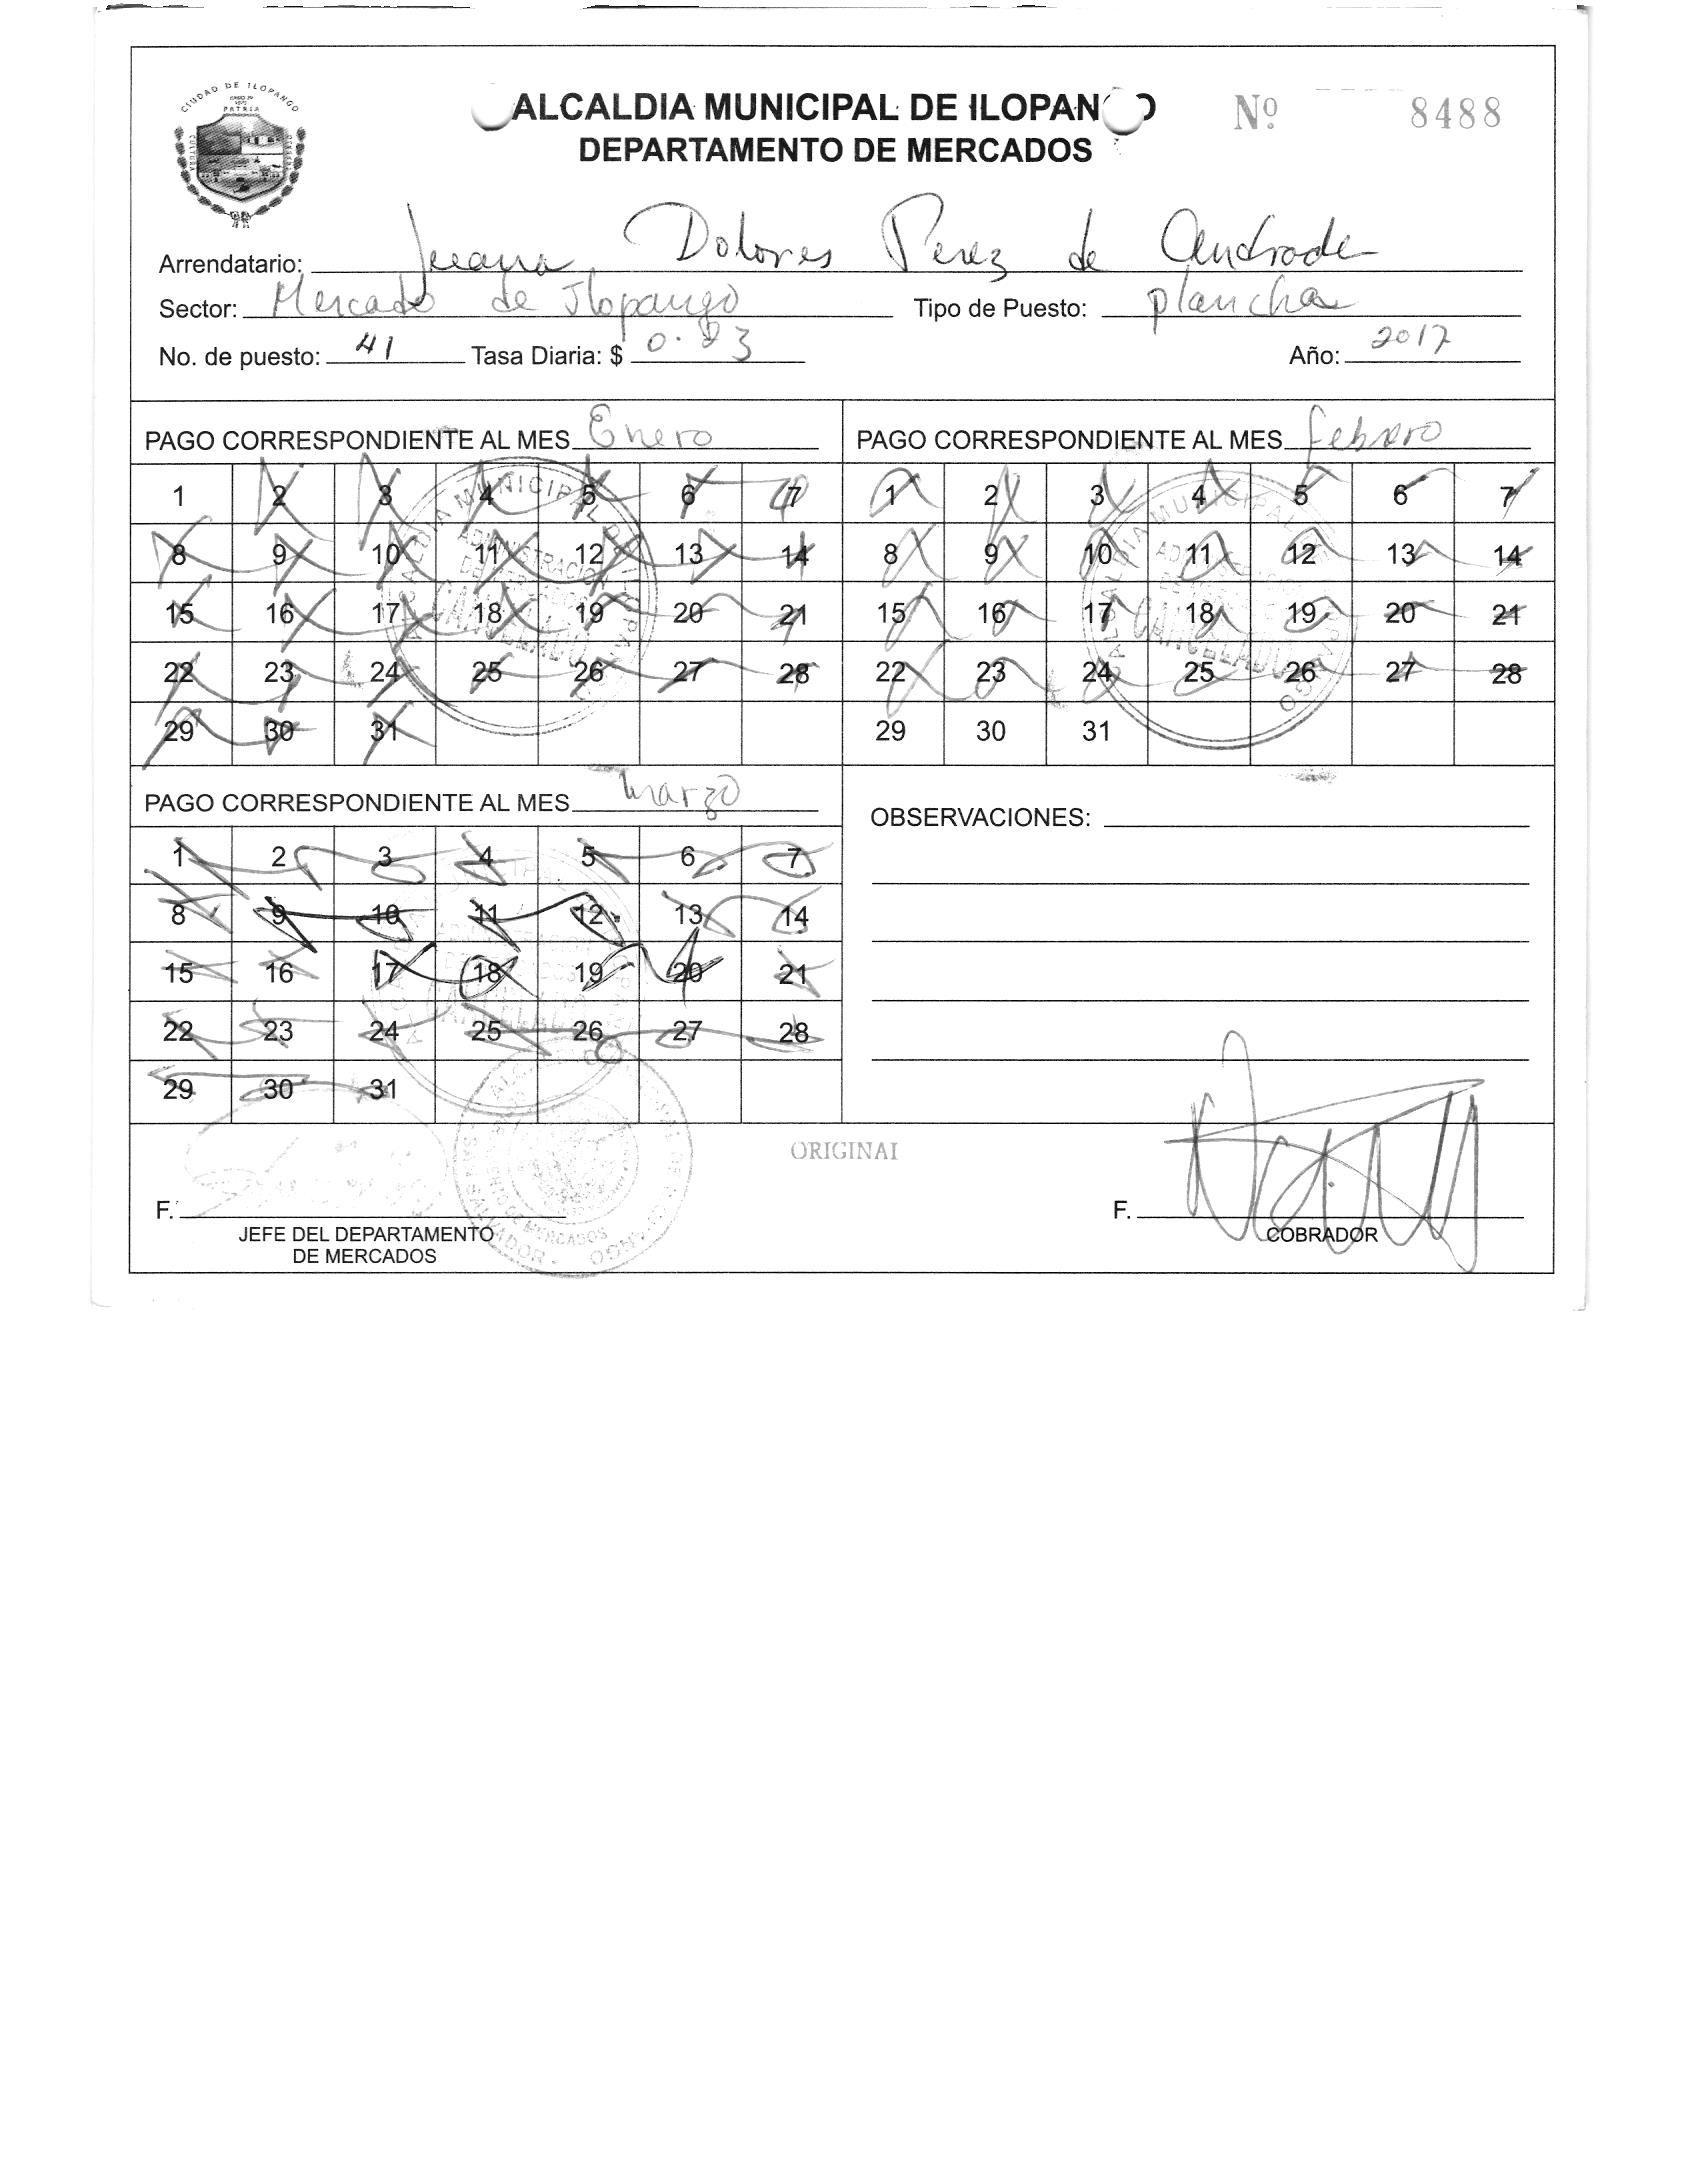 CIUDAD DE ILOPANGO
PATRIA
ALCALDIA MUNICIPAL DE ILOPAN O
DEPARTAMENTO DE MERCADOS
Nº 8488
Arrendatario: Juana Dolores Perez de Andrade
Sector: Mercado de Ilopango Tipo de Puesto: plancha
No. de puesto: 41 Tasa Diaria: $ 0.83 Año: 2017
PAGO CORRESPONDIENTE AL MES Enero
1 2 3 4 5 6 7
8 9 10 11 12 13 14
15 16 17 18 19 20 21
22 23 24 25 26 27 28
29 30 31
PAGO CORRESPONDIENTE AL MES febrero
1 2 3 4 5 6 7
8 9 10 11 12 13 14
15 16 17 18 19 20 21
22 23 24 25 26 27 28
29 30 31
PAGO CORRESPONDIENTE AL MES marzo
1 2 3 4 5 6 7
8 9 10 11 12 13 14
15 16 17 18 19 20 21
22 23 24 25 26 27 28
29 30 31
OBSERVACIONES:
ORIGINAL
F.
JEFE DEL DEPARTAMENTO
DE MERCADOS
F.
COBRADOR